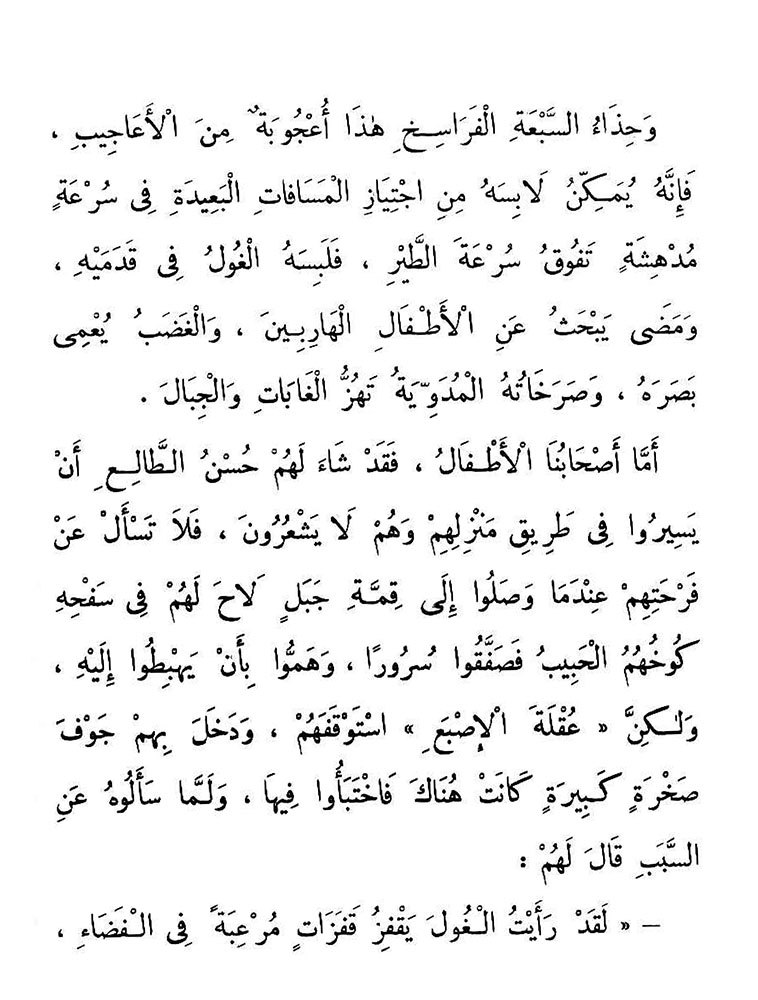 وَحِذَاءُ السَّبْعَةِ الْفَرَاسِخِ هٰذَا أُعْجُوبَةٌ مِنَ الْأَعَاجِيبِ ،
فَإِنَّهُ يُمَكِّنُ لَابِسَهُ مِنِ اجْتِيَازِ الْمَسَافَاتِ الْبَعِيدَةِ فِى سُرْعَةٍ
مُدْهِشَةٍ تَفُوقُ سُرْعَةَ الطَّيْرِ ، فَلَبِسَهُ الْغُولُ فِى قَدَمَيْهِ ،
وَمَضَى يَبْحَثُ عَنِ الْأَطْفَالِ الْهَارِبِينَ ، وَالْغَضَبُ يُعْمِى
بَصَرَهُ ، وَصَرَخَاتُهُ الْمُدَوِّيَةُ تَهُزُّ الْغَابَاتِ وَالْجِبَالَ .
أَمَّا أَصْحَابُنَا الْأَطْفَالُ ، فَقَدْ شَاءَ لَهُمْ حُسْنُ الطَّالِعِ أَنْ
يَسِيرُوا فِى طَرِيقِ مَنْزِلِهِمْ وَهُمْ لَا يَشْعُرُونَ ، فَلَا تَسْأَلْ عَنْ
فَرْحَتِهِمْ عِنْدَمَا وَصَلُوا إِلَى قِمَّةِ جَبَلٍ لَاحَ لَهُمْ فِى سَفْحِهِ
كُوخُهُمُ الْحَبِيبُ فَصَفَّقُوا سُرُورًا ، وَهَمُّوا بِأَنْ يَهْبِطُوا إِلَيْهِ ،
وَلٰكِنَّ « عُقْلَةَ الْإِصْبَعِ » اسْتَوْقَفَهُمْ ، وَدَخَلَ بِهِمْ جَوْفَ
صَخْرَةٍ كَبِيرَةٍ كَانَتْ هُنَاكَ فَاخْتَبَأُوا فِيهَا ، وَلَمَّا سَأَلُوهُ عَنِ
السَّبَبِ قَالَ لَهُمْ :
– « لَقَدْ رَأَيْتُ الْغُولَ يَقْفِزُ قَفَزَاتٍ مُرْعِبَةً فِى الْفَضَاءِ ،